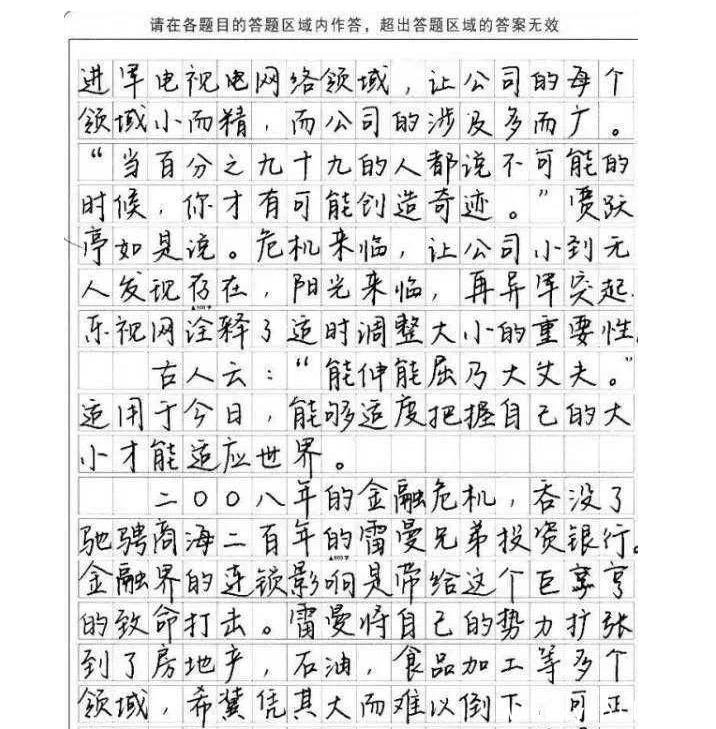 请在各题目的答题区域内作答，超出答题区域的答案无效
进军电视电网络领域，让公司的每个
领域小而精，而公司的涉及多而广。
“当百分之九十九的人都说不可能的
时候，你才有可能创造奇迹。”贾跃
亭如是说。危机来临，让公司小到无
人发现存在，阳光来临，再异军突起.
乐视网诠释了适时调整大小的重要性.
古人云：“能伸能屈乃大丈夫。”
适用于今日，能够适度把握自己的大
小才能适应世界。
二〇〇八年的金融危机，吞没了
驰骋商海二百年的雷曼兄弟投资银行。
金融界的连锁影响是带给这个巨
的致命打击。雷曼将自己的势力扩张
到了房地产，石油，食品加工等多个
领域，希冀凭其大而难以倒下.可正